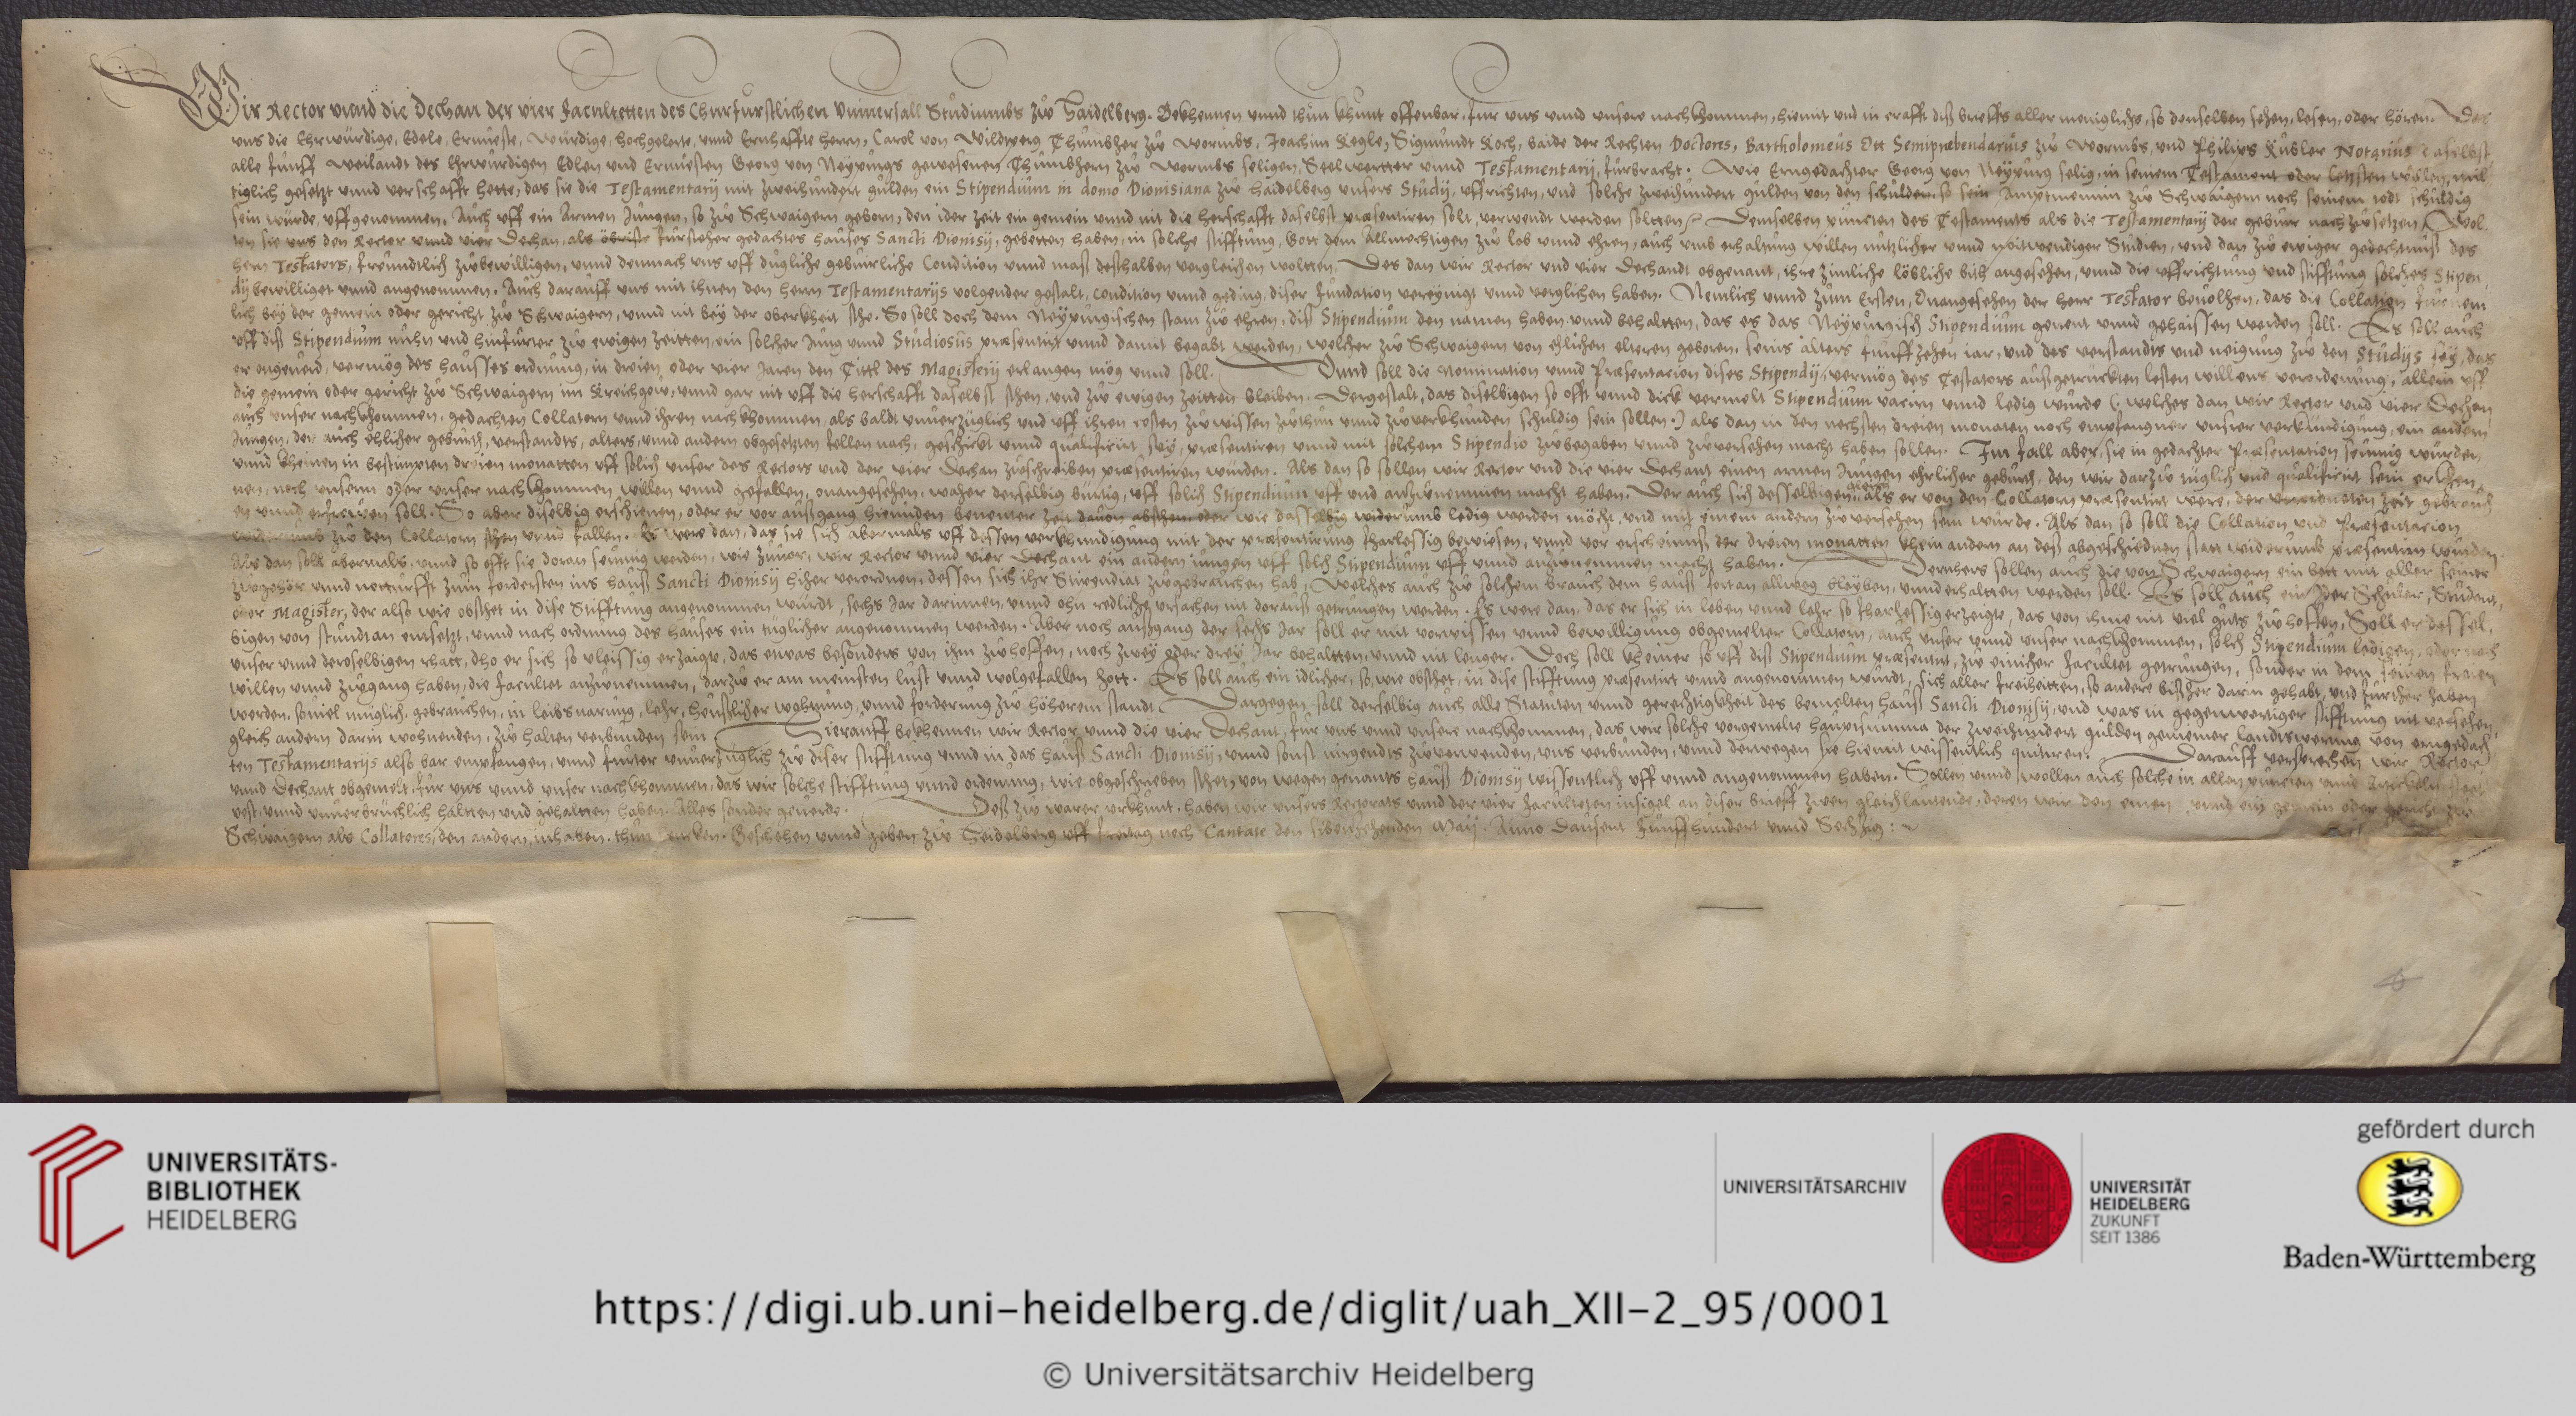 Wir Rector vnnd die Dechan der vier Facultetten des Churfurstlichen Vniuersall Studiumbs zů Haidelberg. Bekhennen vnnd thun khunt offenbar, fur vns vnnd vnsere nachkhommen, hiemit vnd in crafft diß brieffs aller meniglichs, so denselben sehen, lesen, oder hören. Das
vns die Ehrwürdige, Edele, Ernueste, Würdige, hochgelerte, vnnd Ernhaffte hern, Carol von Wildtperg Thůmbher zů Wormbs, Joachim Kegle, Sigmundt Koch, baide der Rechten Doctores, Bartholomeus Ott Semipræbendarius zů Wormbs, vnd Philips Kubler Notarius daselbst
alle funff weilandt des Ehrwürdigen Edlen vnd Ernuesten Georg von Neyppergs gewesenen Thumbhern zů Wormbs seligen, Seelwartter vnnd Testamentarij, furbracht. Wie Erngedachter Georg von Neypperg selig, in seinem Testament oder letzsten willen, mil
tiglich gesetzt vnnd verschafft hette, das sie die Testamentarij mit zweihundert gulden ein Stipendium in domo Dionisiana zů haidelberg vnsers Studij, vffrichten, vnd solche zweihundert gulden von den schulden so sein Amptmennin zů Schwaigern noch seinem todt schuldig
sein würde, vffgenommen. Auch vff ein Armen Jungen, so zů Schwaigern geborn, den ider zeit ein gemein vnnd nit die herschafft daselbst præsentiren solt, verwendt werden soltten. Demselben puncten des Testaments als die Testamentarij der gebur nachzusetzen, Wol
ten sie vns den Rector vnnd vier Dechan, als öbriste fursteher gedachtes hauses Sancti Dionisij, gebetten haben, in solche stifftung, Gott dem Allmechtigen zů lob vnnd ehren, auch vmb erhaltung willen nutzlicher vnnd notwendiger Studien, vnd dan zů ewiger gedechtnuß des
hern Testators, freundtlich zubewilligen, vnnd demnach vns vff dugliche geburliche Condition vnnd maß deßhalben vergleichen woltten. Des dan wir Rector vnd vier Dechandt obgenant, ihre zimliche löbliche bitt angesehen, vnnd die vffrichtung vnd stifftung solches Stipen
dij bewilliget vnnd angenommen. Auch darauff vns mit ihnen den hern Testamentarijs volgender gestalt, condition vnnd geding, diser fundation vereynigt vnnd verglichen haben. Nemlich vnnd zum Ersten, Onangesehen der herr Testator beuolhen, das die Collation furnem
lich bey der gemein oder gericht zů Schwaigern, vnnd nit bey der oberkheit sthe. So soll doch dem Neyppergischen stam zů ehren, diß Stipendium den namen haben vnnd behaltten, das es das Neyppergisch Stipendium genent vnnd gehaissen werden soll. Es soll auch
vff diß Stipendium nuhn vnd hinfurter zů ewigen zeitten, ein solcher jung vnnd Studiosus præsentirt vnnd damit begabt werden, welcher zů Schwaigern von ehlichen elteren geboren, seins alters funffzehen iar, vnd des verstandts vnd neigung zů den Studijs sey, das
er ongeuerd, vermög des hausses ordnung, in dreien oder vier Jaren den Tittl des Magisterij erlangen mög vnnd soll. Vnnd soll die Nomination vnnd Præsentation dises Stipendij, vermög des Testators außgetruckten lesten willens verordenung, allein vff
die gemein oder gericht zů Schwaigern im Kreichgöw, vnnd gar nit vff die herschafft daselbst sthen, vnd zů ewigen zeitten bleiben. Dergestalt, das dieselbigen so offt vnnd dick vermelt Stipendium vacirn vnnd ledig wurde (welches dan wir Rector vnd vier Dechan
auch vnser nachkhommen, gedachten Collatorn vnnd ihren nachkhommen, als baldt vnuerzuglich vnd vff ihren costen zuwissen zuthun vnnd zuuerkhunden schuldig sein sollen:) als dan in den nechsten dreien monaten noch empfangner vnser verkundigung, ein andern
Jungen, der auch ehlicher geburth, verstandts, alters, vnnd andern obgesetzten fellen nach, geschickt vnnd qualificirt sey, præsentiren vnnd mit solchem Stipendio zubegaben vnnd zuuersehen macht haben sollen. Im fall aber, sie in gedachter Præsentation seumig wurden,
vnnd kheinen in bestimpten dreien monatten vff solich vnser des Rectors vnd der vier Dechan zuschreiben præsentiren wurden. Als dan so sollen wir Rector vnd die vier Dechant einen armen Jungen ehrlicher geburth, den wir darzů tuglich vnd qualificirt sein erkhen
nen, noch vnserm oder vnser nachkhommen willen vnnd gefallen, onangesehen, waher derselbig burtig, vff solich Stipendium vff vnd anzunemmen macht haben. Der auch sich desselbigen gleich als er von den Collatorn præsentirt were, der zeit gebrauch
en vnnd erfrewen soll. So aber diselbig erschienen, oder er vor außgang hieunden benenter zeit dauon abstehen oder wie dasselbig widerumb ledig werden möcht, vnd mit einem andern zuuersehen sein wurde. Als dan so soll die Collation vnd Præsentation
widerumb zů den Collatorn sthen vnnd fallen. Es were dan, das sie sich abermals vff dessen verkhundigung mit der præsentirung fharlessig bewiesen, vnnd vor erscheinung der dreien monatten khein andern an deß abgeschiednen statt widerumb præsentirn wurden.
Als dan soll abermals, vnnd so offt sie doran seumig werden, wie zuuor, wir Rector vnnd vier Dechant ein andern jungen vff solch Stipendium vff vnnd anzunemmen macht haben. Dernhers sollen auch die von Schwaigern ein bett mit aller seiner
zugehör vnnd notturfft zum fordersten ins hauß Sancti Dionisij hieher verordnen, dessen sich ihr Stipendiat zugebrauchen hab, Welches auch zů solchem brauch dem hauß fortan allweg bleyben, vnnd erhaltten werden soll. Es soll auch ein jder Schuler, Student,
oder Magister, der also wie obsthet in dise Stifftung angenommen wurdt, sechs Jar darinnen, vnnd ohn redliche vrsachen nit darauß getrungen werden. Es were dan, das er sich in leben vnnd lehr so fharlessig erzeigte, das von ihme nit viel guts zuhoffen, Soll er dessel
bigen von stundt an entsetzt, vnnd nach ordnung des hauses ein tuglicher angenommen werden. Aber noch außgang der sechs Jar soll er mit vorwissen vnnd bewilligung obgemelter Collatorn, auch vnser vnnd vnser nachkhommen, solch Stipendium ledigen, oder noch
vnser vnnd deroselbigen rhatt, dho er sich so vleissig erzaigte, das etwas besonders von ihm zuhoffen, noch zwey oder drey Jar behaltten, vnnd nit lenger. Doch soll kheiner so vff diß Stipendium præsentirt, zů einicher facultet getrungen, sonder in dem seinen freien
willen vnnd zugang haben, die facultet anzunemmen, darzů er am meinsten lust vnnd wolgefallen hott. Es soll auch ein idlicher, so, wie obsthet, in dise stifftung præsentirt vnnd angenommen wurdt, sich aller freiheitten, so andere bißher darin gehabt, vnd further haben
werden, souiel muglich, gebrauchen, in leibsnarung, lehr, heußlicher wohnung, vnnd forderung zů höherem standt. Dargegen soll derselbig auch alle Statuten vnnd gerechtigkheit des bemelten hauß Sancti Dionisij, vnd was in gegenwertiger stifftung nit versehen,
gleich andern darin wohnenden, zů halten verbunden sein. Hierauff bekhennen wir Rector vnnd die vier Dechant, fur vns vnnd vnsere nachkhommen, das wir solche vorgemelte hauptsumma der zweihundert gulden gemeiner landtswerung von erngedach
ten Testamentarijs also bar empfangen, vnnd furter vnuerzuglich zů diser stifftung vnnd in das hauß Sancti Dionisij, vnnd sonst nirgendts zuuerwenden, vns verbunden, vnnd derwegen sie hiemit wissentlich quitiren. Darauff versprechen wir Rector
vnnd Dechant obgemelt, fur vns vnnd vnser nachkhommen, das wir solche stifftung vnnd ordenung, wie obgeschrieben sthet, von wegen genants hauß Dionisij wissentlich vff vnnd angenommen haben. Sollen vnnd wollen auch solche in allen puncten vnnd Artickeln steet
vest, vnnd vnuerbruchlich haltten vnd gehaltten haben. Alles sonder geuerde. Deß zů warer vrkhunt, haben wir vnsers Rectorats vnnd der vier Faculteten insigel an diser brieff zwen gleichlautende, deren wir den einen vnnd ein gemein oder gericht zů
Schwaigern als Collatores, den andern, inhaben, thun hencken. Geschehen vnnd geben zů Heidelberg vff freitag noch Cantate den sibenzehenden Maij. Anno Dausent Funffhundert vnnd Sechzig:
UNIVERSITÄTS-
BIBLIOTHEK
HEIDELBERG
UNIVERSITÄTSARCHIV
UNIVERSITÄT
HEIDELBERG
ZUKUNFT
SEIT 1386
gefördert durch
Baden-Württemberg
https://digi.ub.uni-heidelberg.de/diglit/uah_XII-2_95/0001
© Universitätsarchiv Heidelberg